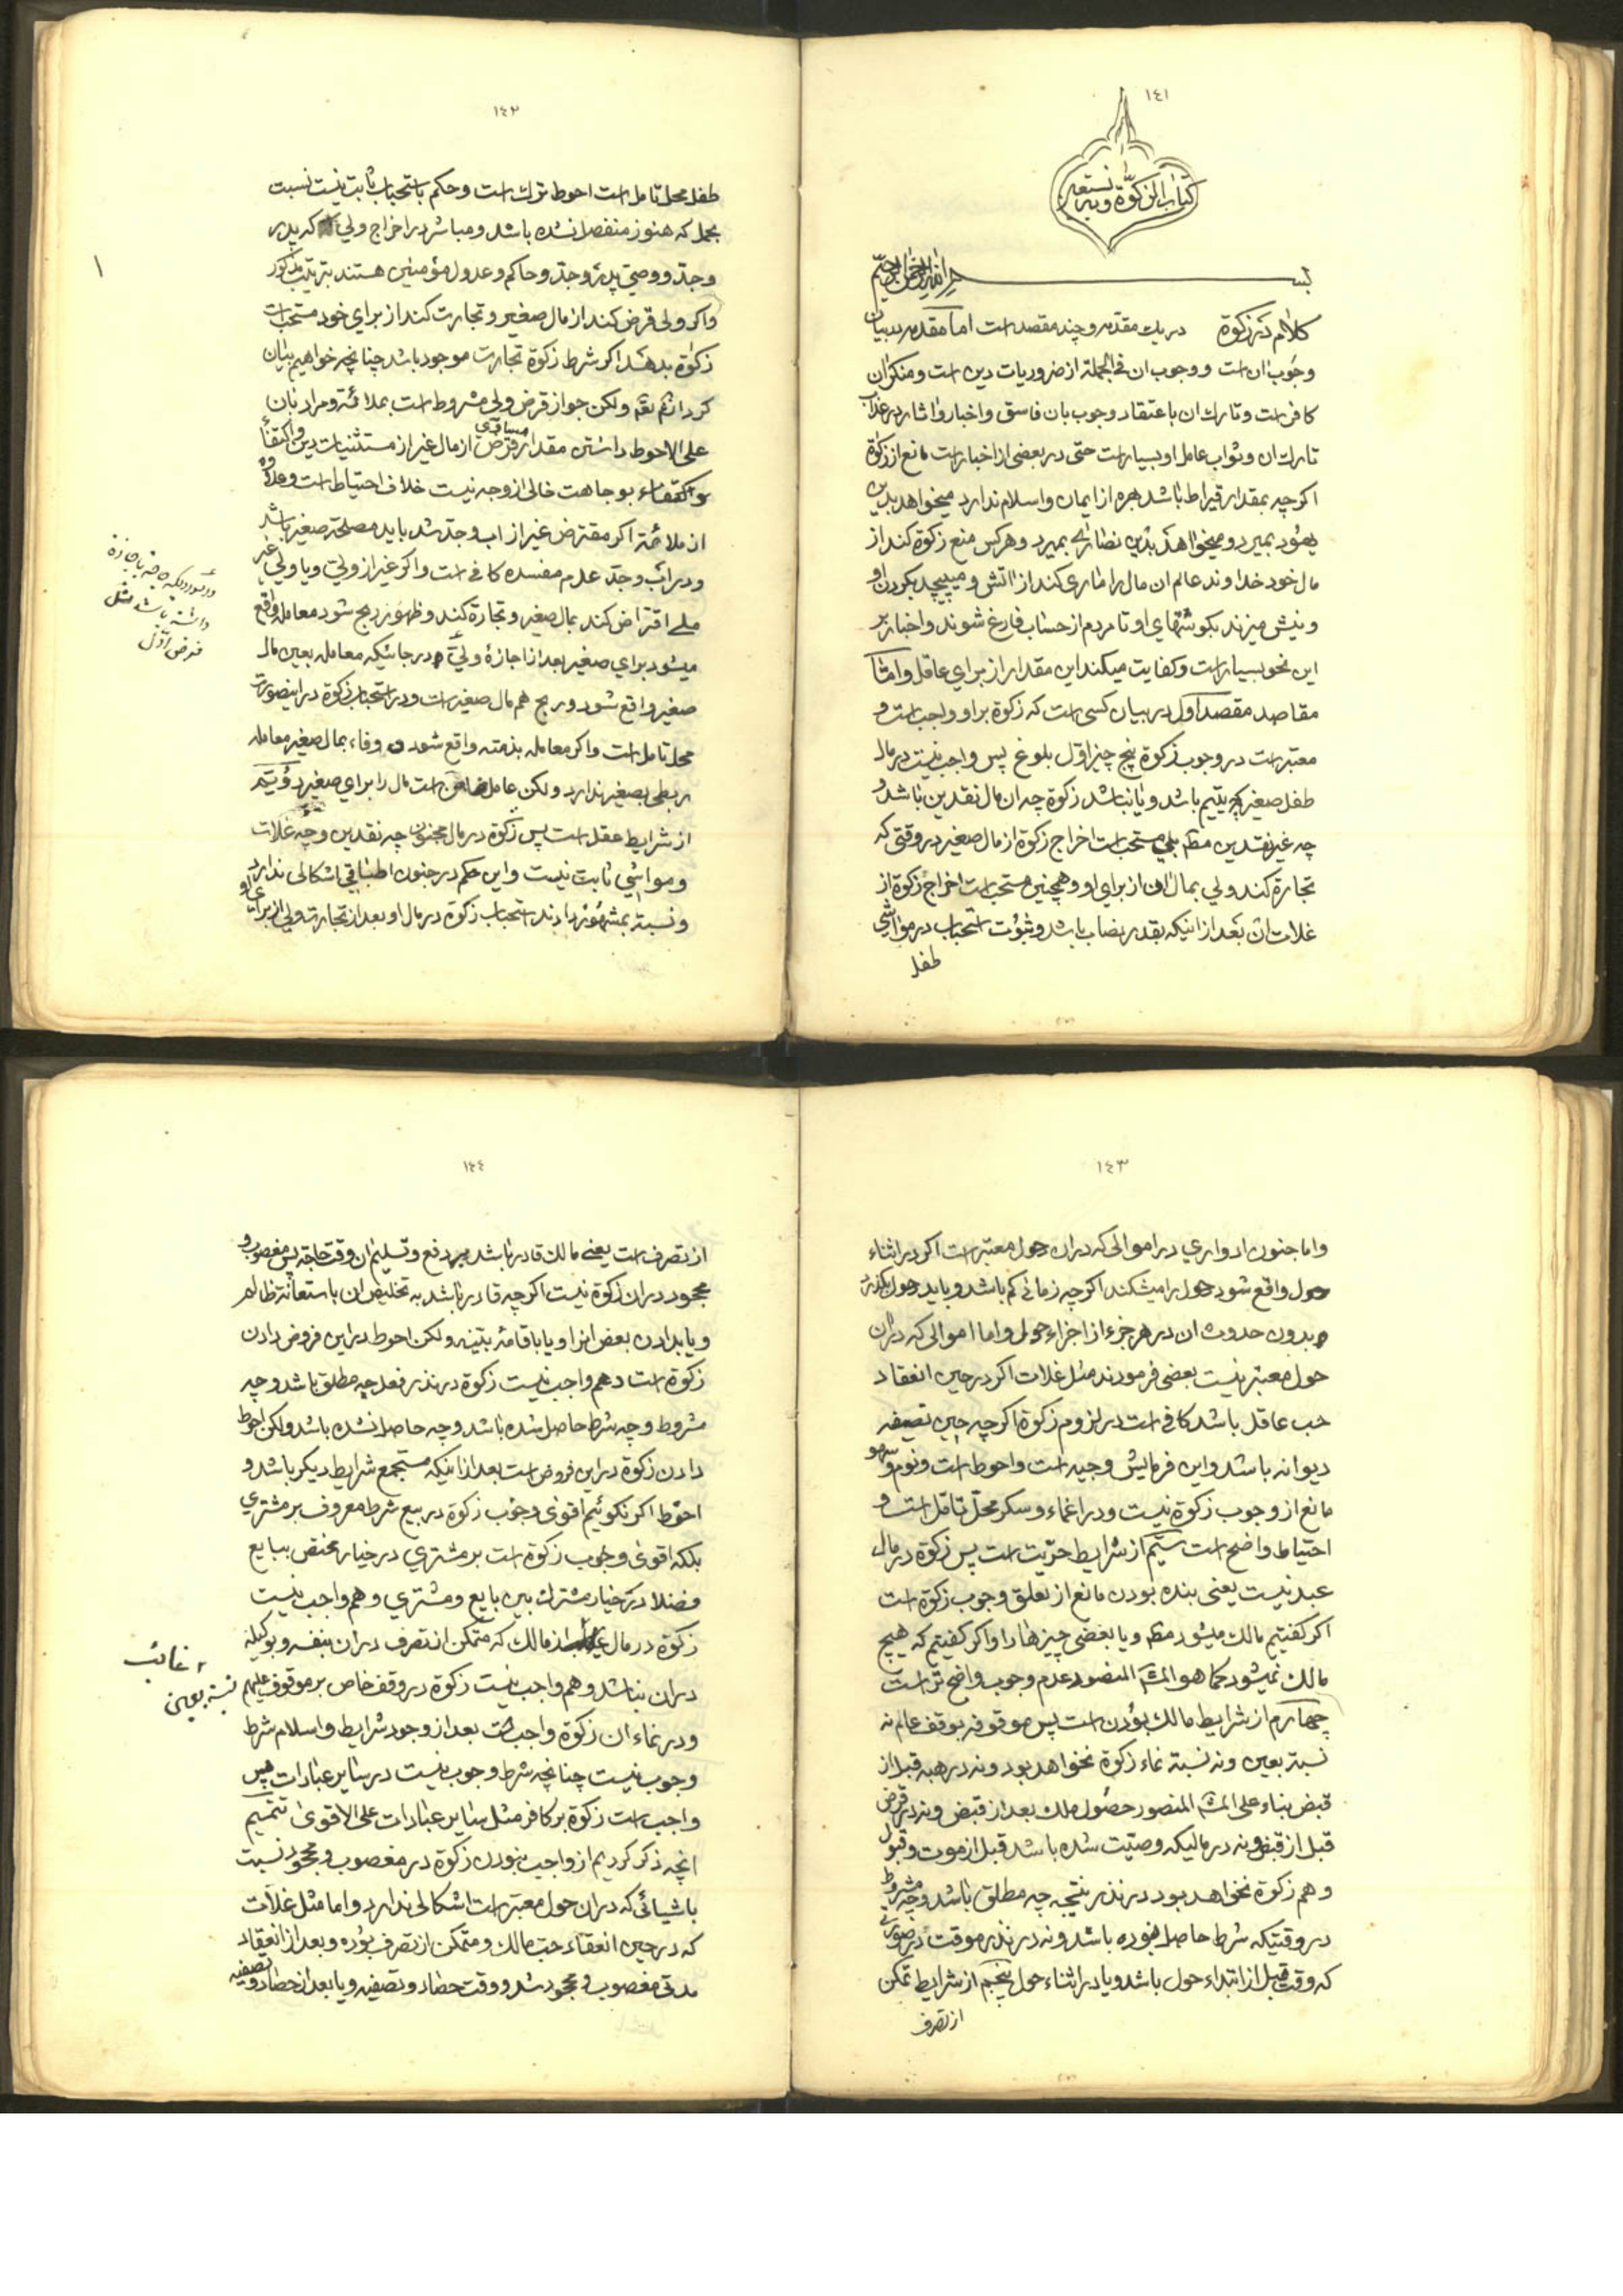 ١٤١
كتاب الزكوة وبه نستعين
بسم الله الرحمن الرحيم
كلام در زكوة در يك مقدمه و چند مقصد است اما مقدمه در بيان
وجوب ان است و وجوب ان فى الجمله از ضروريات دين است و منكر ان
كافر است و تارك ان با اعتقاد وجوب بان فاسق و اخبار و اثار در عذاب
تارك ان و ثواب عامل او بسيار است حتى در بعضى از اخبار است مانع از زكوة
اكر چه بمقدار قيراط باشد بهره از ايمان و اسلام ندارد ميخواهد بدين
يهود بميرد و ميخواهد بدين نصارى بميرد و هر كس منع زكوة كند از
مال خود خداوند عالم ان مال را مارى كند از اتش و ميپيچد بكردن او
و نيش ميزند بكوشتهاى او تا مردم از حساب فارغ شوند و اخبار بر
اين نحو بسيار است و كفايت ميكند اين مقدار از براى عاقل و اما
مقاصد مقصد اول در بيان كسى است كه زكوة بر او واجب است و
معتبر است در وجوب زكوة پنج چيز اول بلوغ پس واجب نيست در مال
طفل صغير چه يتيم باشد و يا نباشد زكوة چه ان مال نقدين باشد و
چه غير نقدين مطم بلى مستحب است اخراج زكوة از مال صغير در وقتى كه
تجارة كند ولى بمال ان از براى او و همچنين مستحب است اخراج زكوة از
غلات ان بعد از اينكه بقدر نصاب باشد و ثبوت استحباب در مواشى
طفل
١٤٢
طفل محل تامل است احوط ترك است و حكم باستحباب ثابت نيست نسبت
بحمل كه هنوز منفصل نشده باشد و مباشر در اخراج ولى كه پدر
و جد و وصى پدر و جد و حاكم و عدول مؤمنين هستند بترتيب مذكور
و اكر ولى قرض كند از مال صغير و تجارت كند از براى خود مستحب است
زكوة بدهد اكر شرط زكوة تجارت موجود باشد چنانچه خواهيم بيان
كرد انشم تعم ولكن جواز قرض ولى مشروط است بملائة و مراد بان
على الاحوط داشتن مقدار مساوى قرض از مال غير از مستثنيات دين و اكتفاء
بوجاهت خالى از وجه نيست خلاف احتياط است و علاوه
از ملائة اكر مقترض غير از اب و جد شد بايد مصلحة صغير باشد
و در اب و جد عدم مفسده كافى است و اكر غير از ولى و يا ولى غير
ملى اقتراض كند بمال صغير و تجارة كند و ظهور ربح شود معامله واقع
ميشود براى صغير بعد از اجازة ولى در جائيكه معامله بعين مال
صغير واقع شود و ربح هم مال صغير است و در استحباب زكوة در اينصورت
محل تامل است و اكر معامله بذمته واقع شود و وفاء بمال صغير معامله
ربطى بصغير ندارد ولكن عامل ضامن است مال را براى صغير دويم
از شرايط عقل است پس زكوة در مال مجنون چه نقدين و چه غلات
و مواشى ثابت نيست و اين حكم در جنون اطباقى اشكالى ندارد
و نسبة بمشهور دادند استحباب زكوة در مال او بعد از تجارت ولى از براى او
داشته باشد مثل
فرض اول
١
١٤٣
و اما جنون ادوارى در اموالى كه در ان حول معتبر است اكر در اثناء
حول واقع شود حول را ميشكند اكر چه زمانى كم باشد و بايد حول بكذرد
بدون حدوث ان در هر جزء از اجزاء حول و اما اموالى كه در ان
حول معتبر نيست بعضى فرمودند مثل غلات اكر در حين انعقاد
حب عاقل باشد كافى است در لزوم زكوة اكر چه حين تصفيه
ديوانه باشد و اين فرمايش وجيه است و احوط است و نوم و سهو
مانع از وجوب زكوة نيست و در اغماء و سكر محل تامل است و
احتياط واضح است سيم از شرايط حريت است پس زكوة در مال
عبد نيست يعنى بنده بودن مانع از تعلق وجوب زكوة است
اكر كفتيم مالك ميشود مطم و يا بعضى چيزها را و اكر كفتيم كه هيچ
مالك نميشود كما هو المشه المنصور عدم وجوب واضح تر است
چهارم از شرايط مالك بودن است پس موقوفه بوقف عام نه
نسبة بعين و نه نسبة نماء زكوة نخواهد بود و نه در هبه قبل از
قبض بناء على المشه المنصور حصول ملك بعد از قبض و نه در قرض
قبل از قبض و نه در ماليكه وصيت شده باشد قبل از موت و قبول
و هم زكوة نخواهد بود در نذر نتيجه چه مطلق باشد و چه مشروط
در وقتيكه شرط حاصل نبوده باشد و نه در نذر موقت در صورتى
كه وقت قبل از ابتداء حول باشد و يا در اثناء حول پنجم از شرايط تمكن
از تصرف
١٤٤
از تصرف است يعنى مالك قادر باشد بر دفع و تسليم ان وقت حاجة پس مغصوب و
مجحود در ان زكوة نيست اكر چه قادر باشد به تخليص ان باستعانة ظالم
و يا بدادن بعض انرا و يا باقامۀ بينه ولكن احوط در اين فروض دادن
زكوة است و هم واجب نيست زكوة در نذر فعل چه مطلق باشد و چه
مشروط و چه شرط حاصل شده باشد و چه حاصل نشده باشد ولكن احوط
دادن زكوة در اين فروض است بعد از اينكه مستجمع شرايط ديكر باشد و
احوط اكر نكوئيم اقوى وجوب زكوة در بيع شرط معروف بر مشترى
بلكه اقوى وجوب زكوة است بر مشترى در خيار مختص ببايع
فضلا در خيار مشترك بين بايع و مشترى و هم واجب نيست
زكوة در مال از مالك كه متمكن از تصرف در ان بنفسه و بوكيله
در ان نباشد و هم واجب نيست زكوة در وقف خاص بر موقوف عليهم
و در نماء ان زكوة واجب است بعد از وجود شرايط و اسلام شرط
وجوب نيست چنانچه شرط وجوب نيست در ساير عبادات پس
واجب است زكوة بر كافر مثل ساير عبادات على الاقوى تتميم
انچه ذكر كرديم از واجب نبودن زكوة در مغصوب و مجحود نسبت
باشيائى كه در ان حول معتبر است اشكالى ندارد و اما مثل غلات
كه در حين انعقاد حب مالك و متمكن از تصرف بوده و بعد از انعقاد
مدتى مغصوب و مجحود شد و وقت حصاد و تصفيه و يا بعد از حصاد و تصفيه
غائب
نسبة بعين